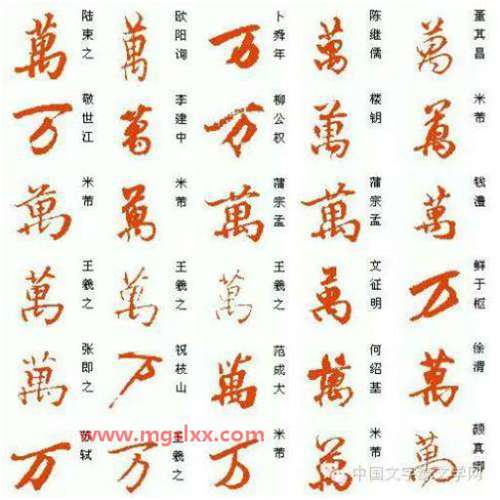 萬 陆柬之
萬 欧阳询
万 卜舜年
萬 陈继儒
萬 董其昌
万 敬世江
萬 李建中
万 柳公权
萬 楼钥
萬 米芾
萬 米芾
萬 米芾
萬 蒲宗孟
萬 蒲宗孟
萬 钱澧
萬 王羲之
萬 王羲之
萬 王羲之
萬 文征明
万 鲜于枢
萬 张即之
万 祝枝山
萬 范成大
萬 何绍基
萬 徐渭
www.mgslxx.com
万 苏轼
万 王羲之
万 米芾
萬 米芾
萬 颜真卿
中国文字 文学网